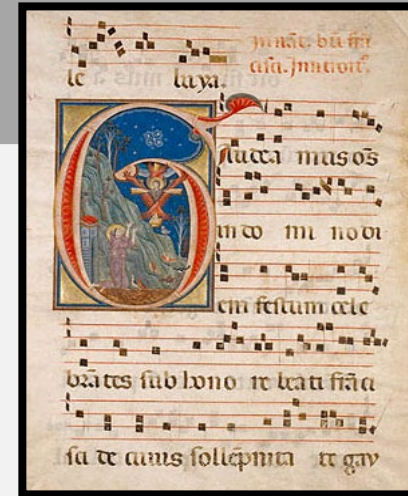 le luya.
In nat. bti frā
cisci. Introit.
Gaudea mus oēs
in do mi no di
em festum cele
brātes sub hono re beati frāci
sci de cuius sollēpnita te gau